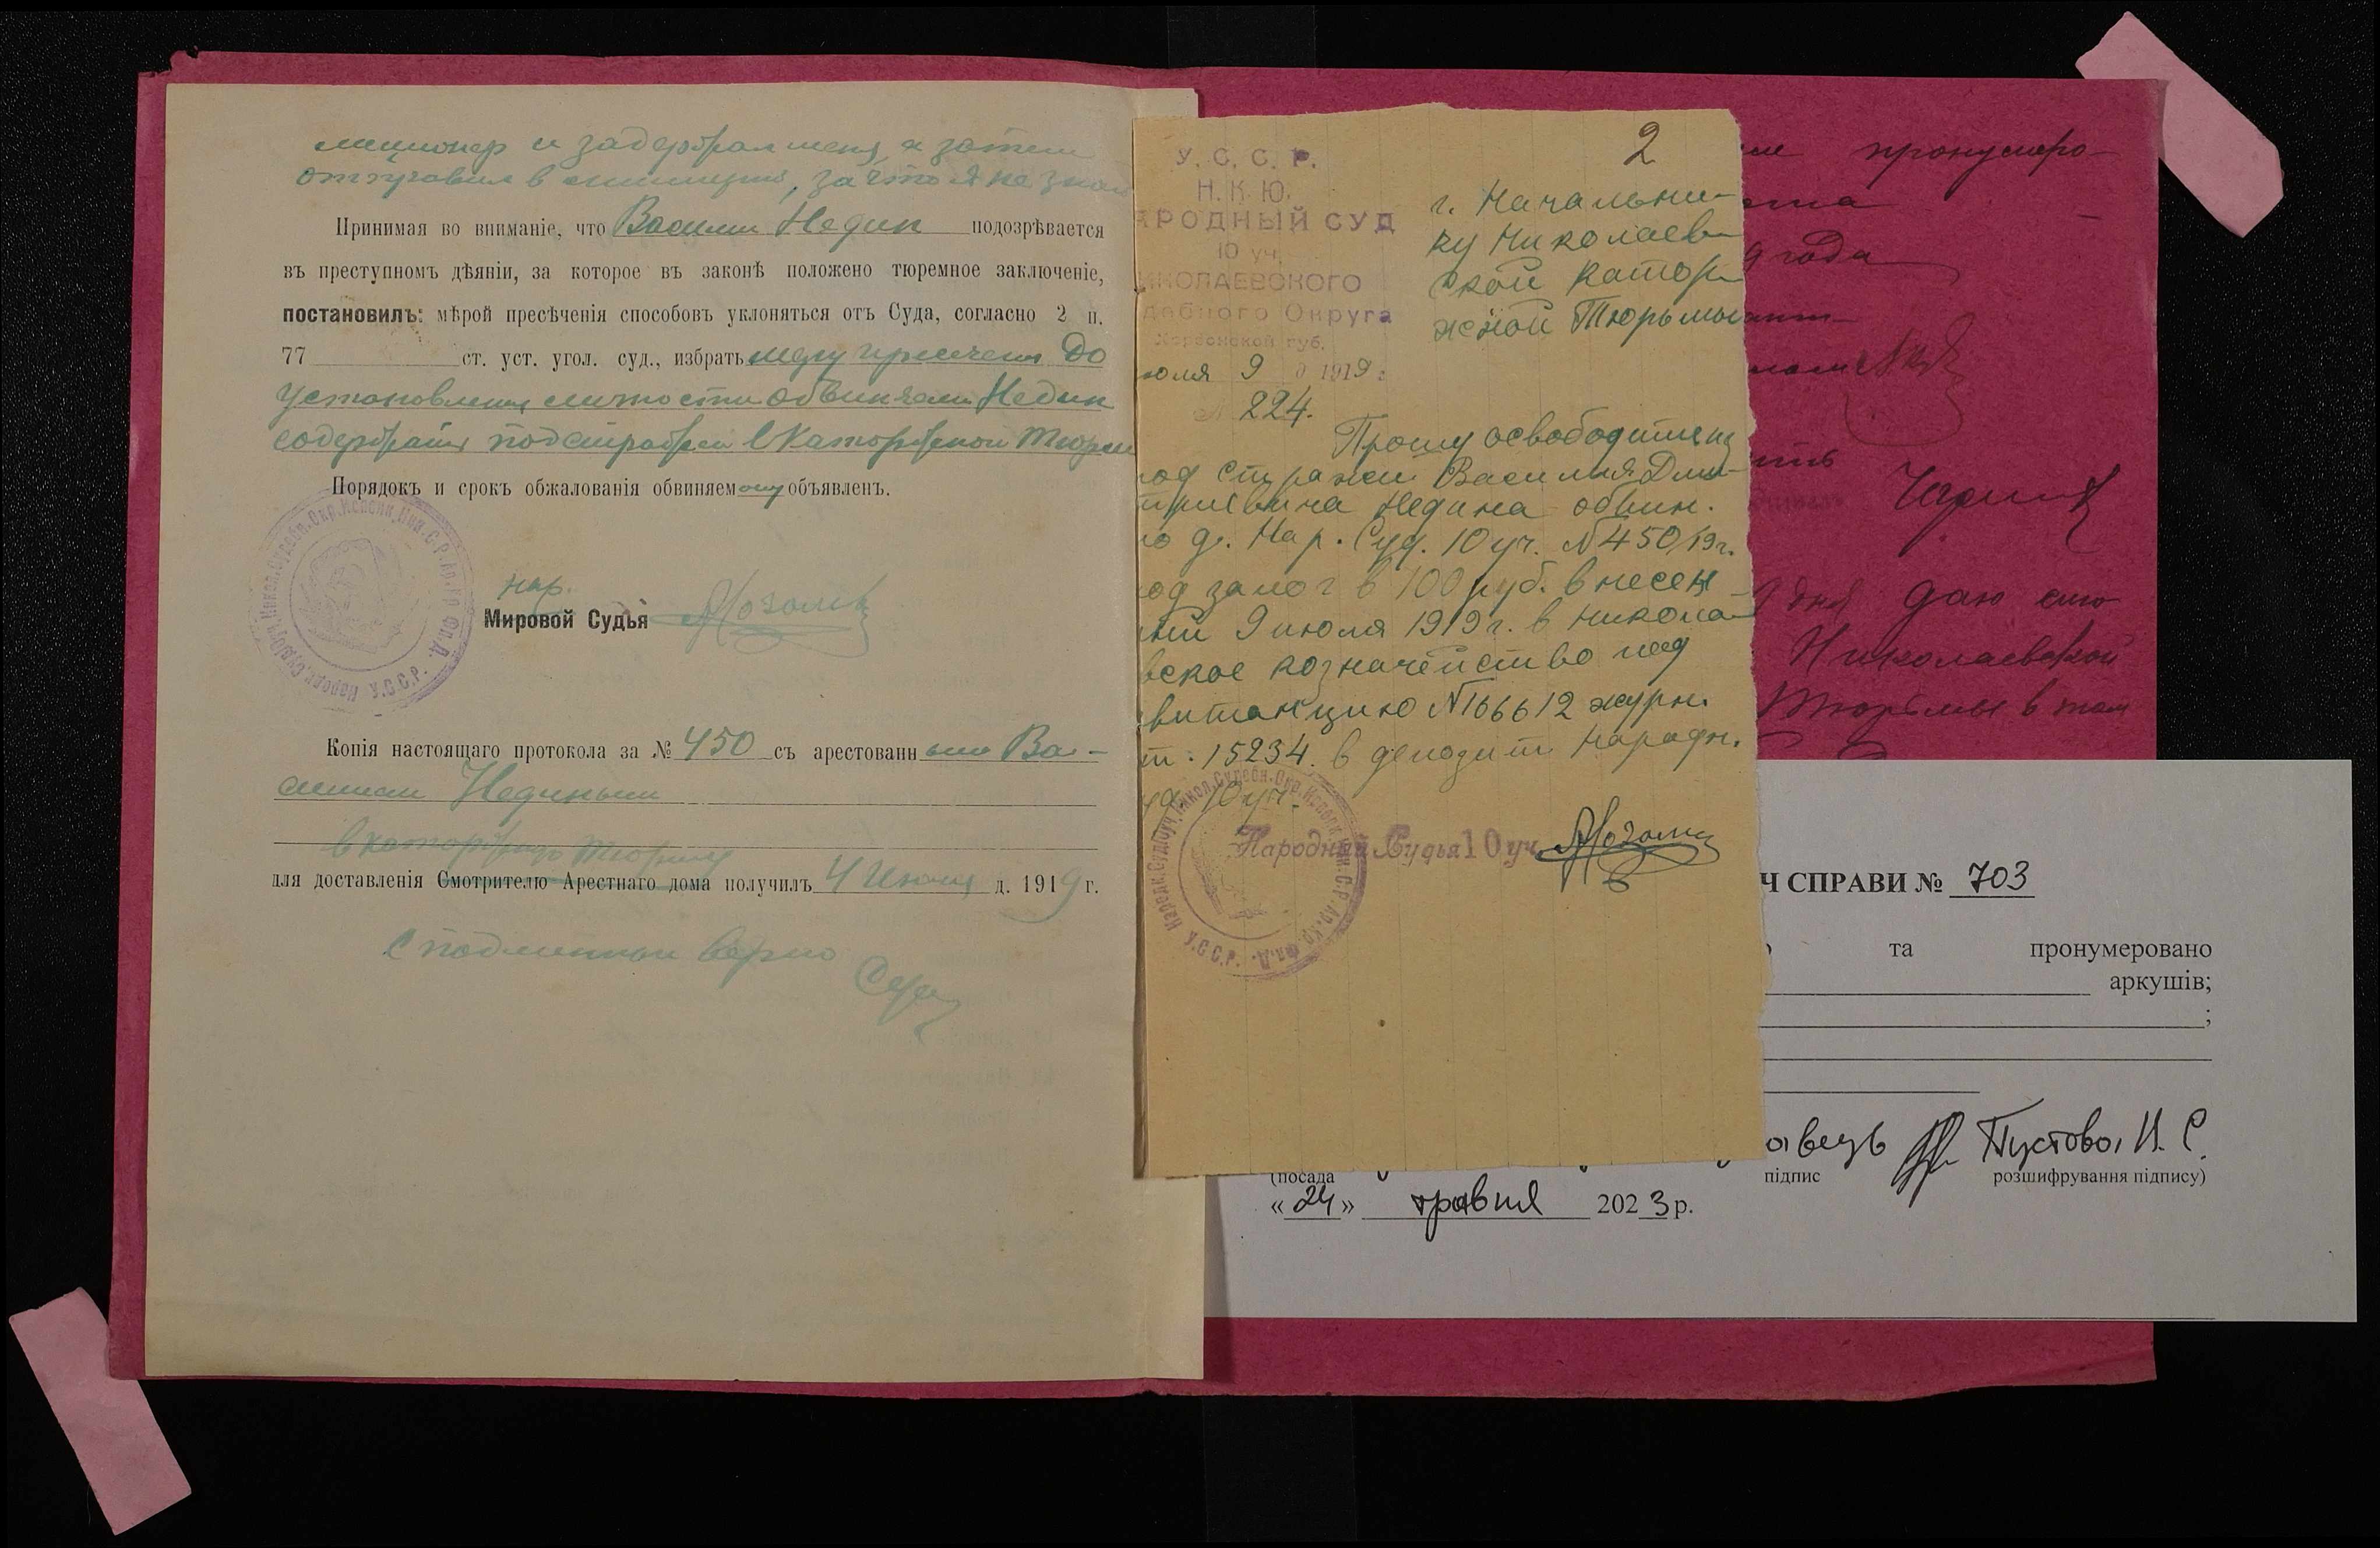 милиционер и задержал меня, а затем
отправил в милицию, за что я не знаю
Принимая во вниманіе, что Василий Недин подозрѣвается
въ преступномъ дѣяніи, за которое въ законѣ положено тюремное заключеніе,
постановилъ: мѣрой пресѣченія способовъ уклоняться отъ Суда, согласно 2 п.
77 ст. уст. угол. суд., избрать меру пресечения до
установления личности обвиняем. Недин
содержать под стражей в Каторжной Тюрьме
Порядокъ и срокъ обжалованія обвиняемому объявленъ.
нар.
Мировой Судья
Народн. Суд 10 уч. Никол. Судебн. Окр. Исполн.
У.С.С.Р.
Копія настоящаго протокола за № 450 съ арестованным Ва-
силием Нединым
в каторжную Тюрьму
для доставленія Смотрителю Арестнаго дома получилъ 4 Июля д. 1919 г.
С подлинным верно
2
У. С. С. Р.
Н. К. Ю.
АРОДНЫЙ СУД
10 уч.
ИКОЛАЕВСКОГО
дебного Округа
Херсонской губ.
юля 9 д 1919 г.
№ 224.
г. Начальни-
ку Николаев-
ской Катор-
жной Тюрьмы
Прошу освободить из
под стражи Василия Дми-
триевича Недина обвин.
по д. Нар. Суд. 10 уч. № 450/19 г.
под залог в 100 руб. внесен-
ный 9 июля 1919 г. в Никола-
вское козначейство под
квитанцию № 166612 журн.
ст: 15234. в депозит Народн.
уд. 10 уч.
Народный Судья 10 уч.
Народн. Суд 10 уч. Никол. Судебн. Окр. Исполн.
У.С.С.Р.
пронумеро-
9 года
дня даю сию
Николаевской
Тюрьмы в том
Ч СПРАВИ № 703
та пронумеровано
аркушів;
;
авець Пустова, Н. С.
(посада підпис розшифрування підпису)
« 24 » травня 2023 р.